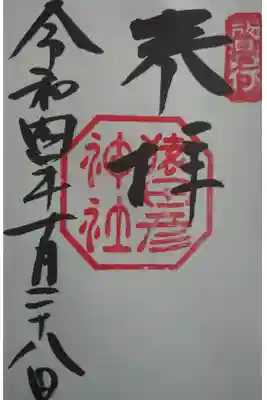 啓行
奉拝
猿田彦
神社
令和四年十月二十八日